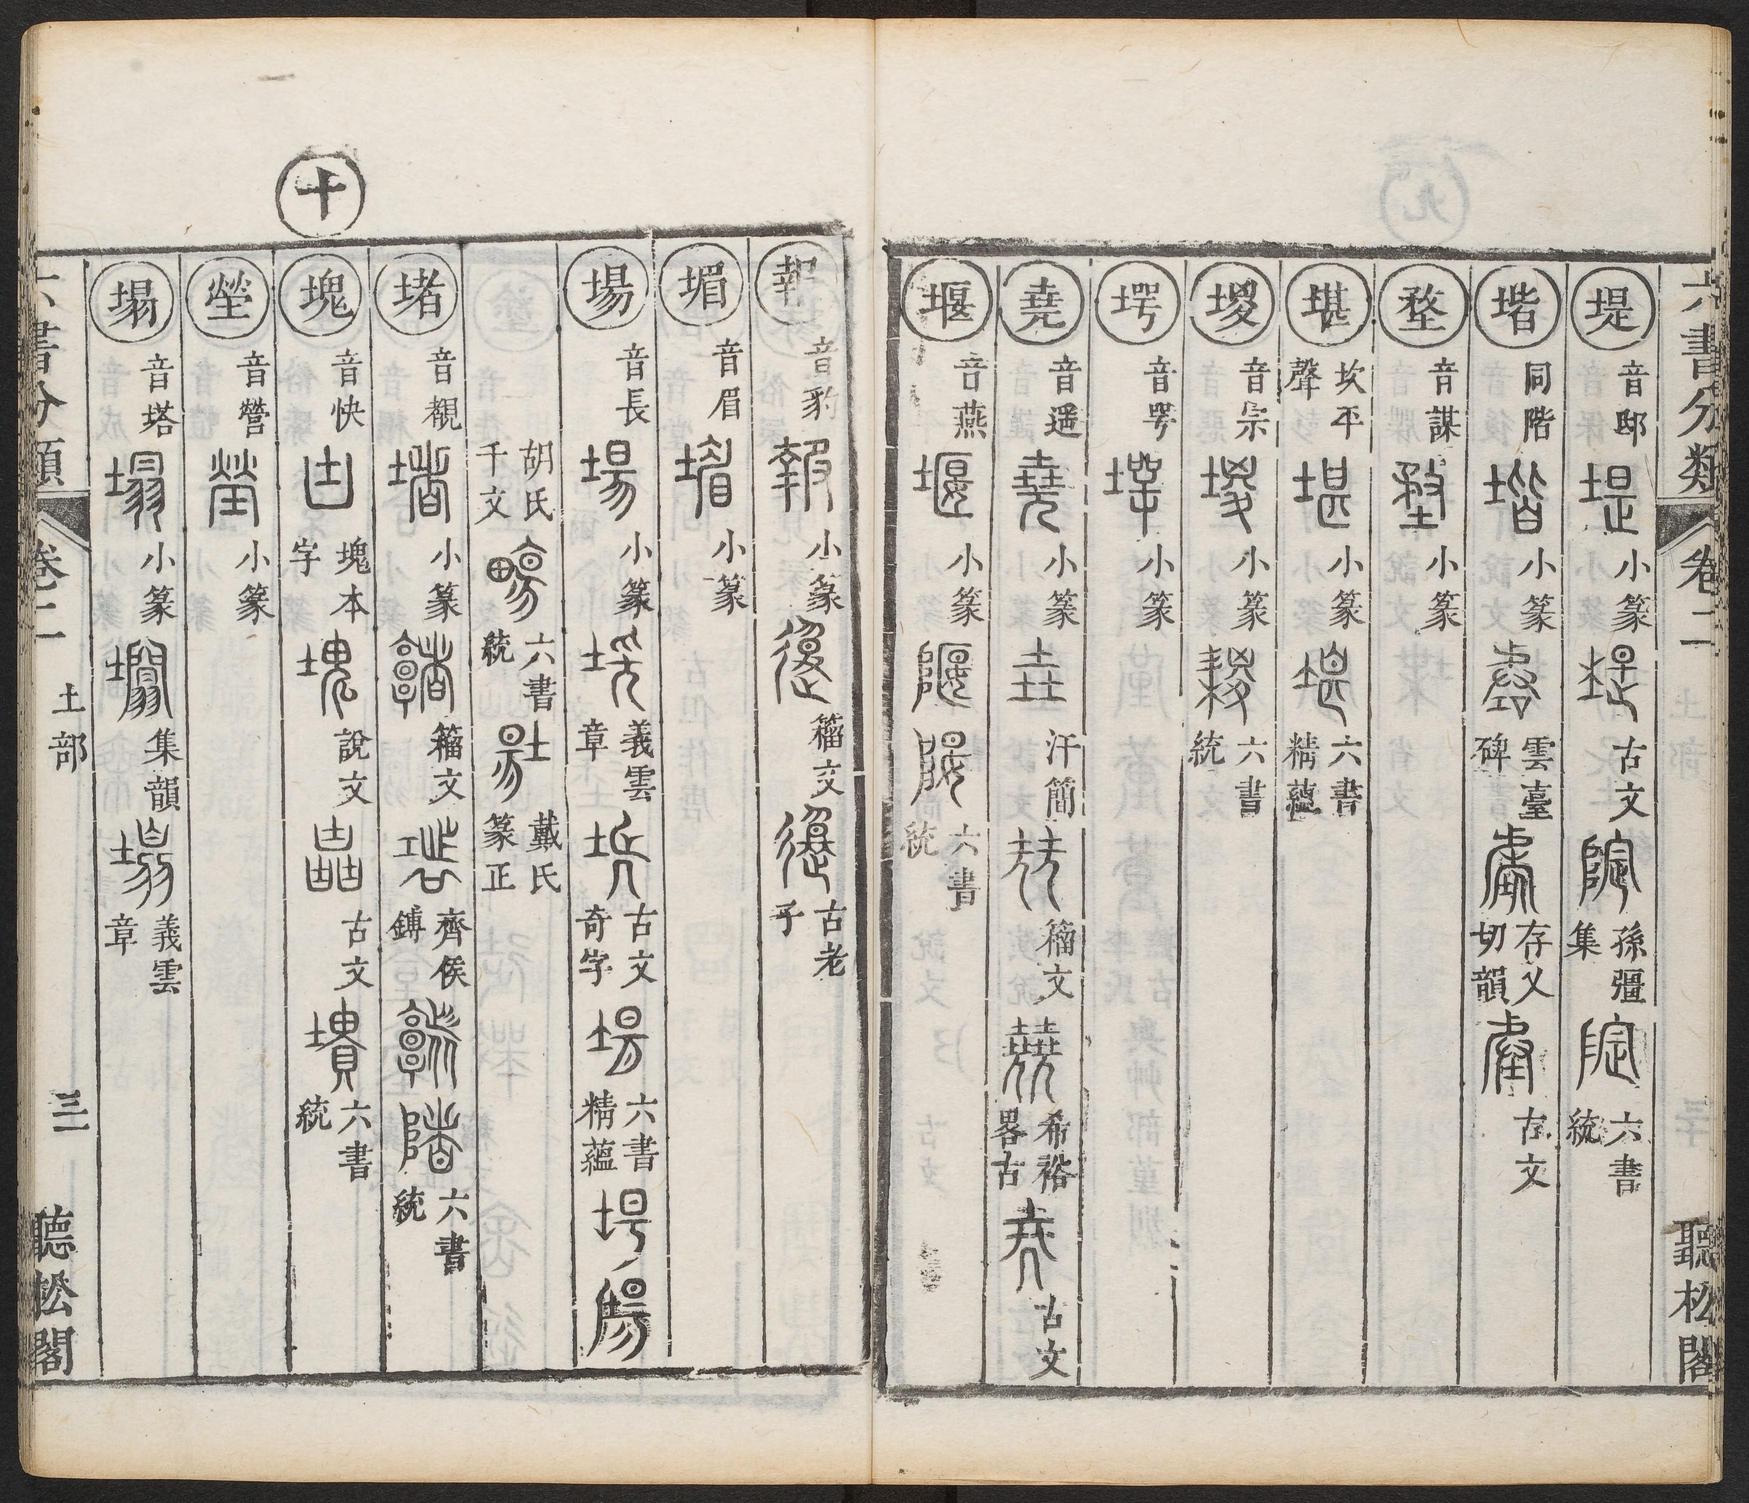 六書分類 卷二 聽松閣
堤 音邸 小篆 古文 孫彊集 六書統
堦 同階 小篆 雲臺碑 存乂切韻 古文
堥 音謀 小篆
堪 坎平聲 小篆 六書精蘊
堫 音宗 小篆 六書統
堮 音咢 小篆
堯 音遥 小篆 汗簡 籀文 希裕畧古 古文
堰 音燕 小篆 六書統
報 音豹 小篆 籀文 古老子
堳 音眉 小篆
場 音長 小篆 義雲章 古文奇字 六書精蘊
胡氏千文 六書統 戴氏篆正
堵 音覩 小篆 籀文 齊侯鎛 六書統
十
塊 音快 凷 塊本字 說文 古文 六書統
塋 音營 小篆
塌 音塔 小篆 集韻 義雲章
六書分類 卷二 土部 三一 聽松閣